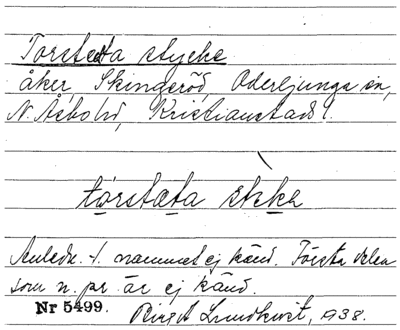 Torsteta stycke
åker, Skingeröd, Oderljunga sn,
N. Åsbo hd, Kristianstads l.
tórstæta stkkə
Anledn. t. namnet ej känd. Första delen
som n. pr. är ej känd.
Nr 5499. Birgit Lundkvist, 1938.